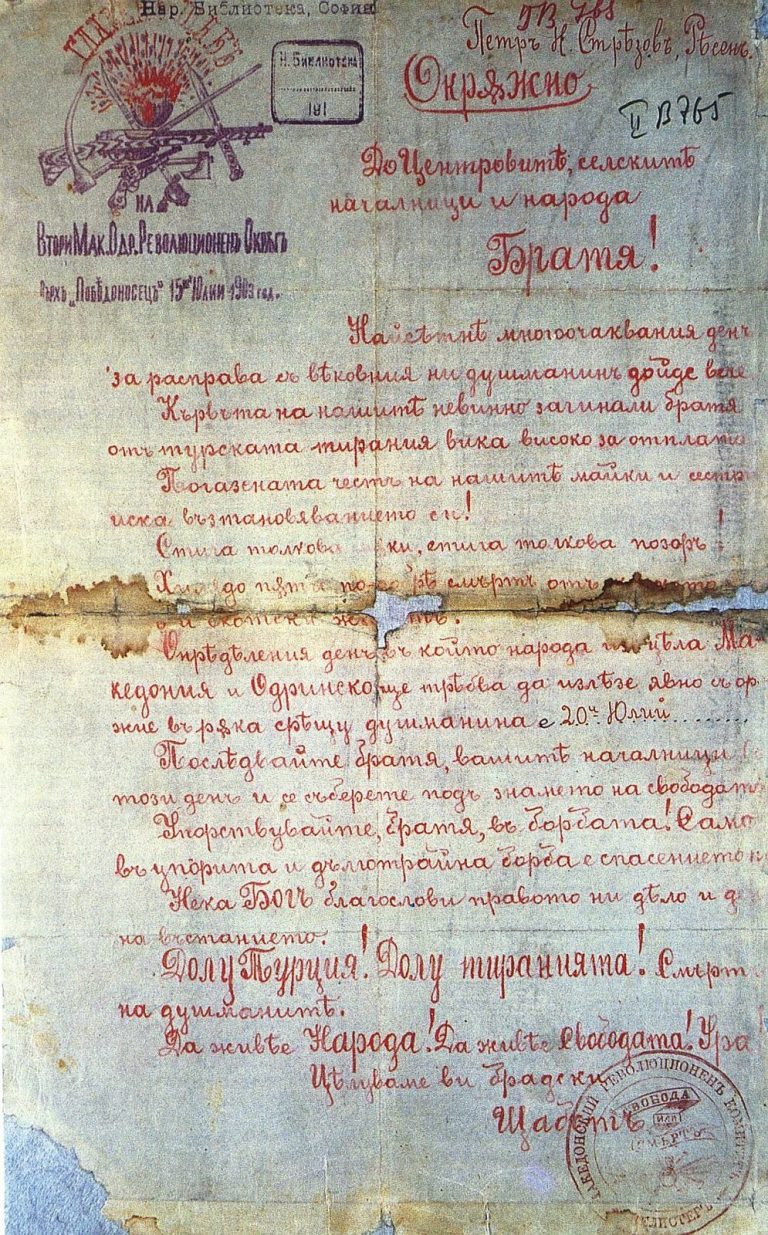 Нар. Библиотека, София
Петръ Н. Стрѣзовъ, Рѣсенъ.
Н. Библиотека
191
Окрѫжно
II В 765
До Центровитѣ, селскитѣ
началници и народа
НА
Втори Мак. Одр. Революционенъ Окрѫгъ
Връхъ „Побѣдоносецъ" 15ий Юлий 1903 год.
Братя!
Найсѣтнѣ многоочаквания день
за расправа съ вѣковния ни душманинъ дойде вече
Кървьта на нашитѣ невинно загинали братя
отъ турската тирания вика високо за отплата
Погазената честь на нашитѣ майки и сестр
иска възтановяванието си!
Стига толкова мѫки, стига толкова позоръ!
до пѫти по-добрѣ смърть отъ
и скотски
Опрѣдѣления день въ който народа изъ цѣла Ма-
кедония и Одринско ще трѣбва да излѣзе явно съ орѫ
жие въ рѫка срѣщу душманина е 20ий Юлий.........
Послѣдвайте братя, вашитѣ началници
този день и се съберете подъ знамето на свободата
Упорствувайте, братя, въ борбата! Само
въ упорита и дълготрайна борба е спасението
Нека БОГЪ благослови правото ни дѣло и
на въстанието.
Долу Турция! Долу тиранията! Смърть
на душманитѣ.
Да живѣе Народа! Да живѣе Свободата! Ура
Цѣлуваме ви брадски
Щабътъ
МАКЕДОНСКИЙ РЕВОЛЮЦИОНЕНЪ КОМИТЕТЪ
СВОБОДА
ИЛИ
СМЪРТЬ